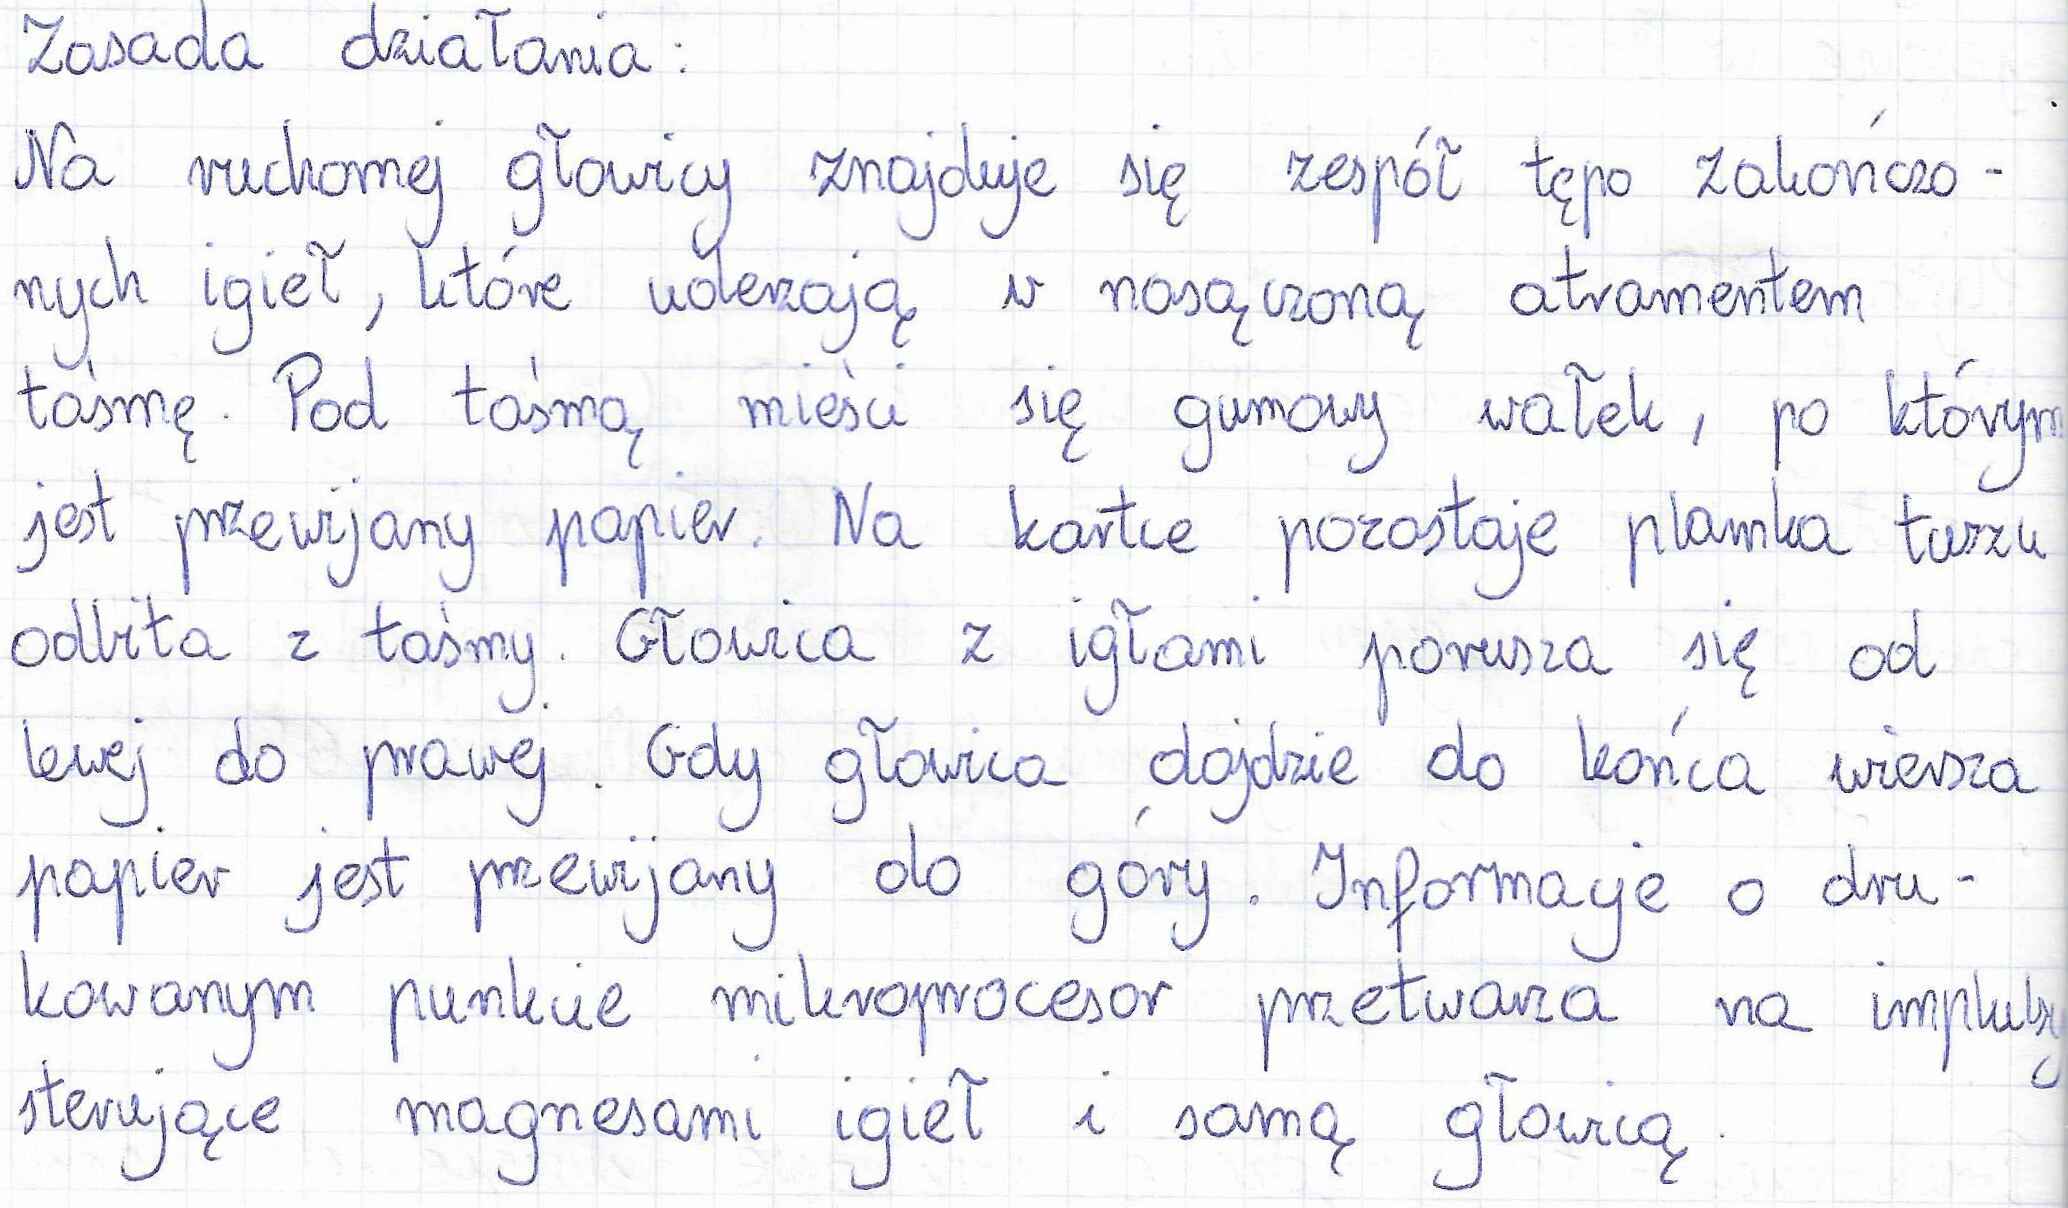 Zasada działania:
Na ruchomej głowicy znajduje się zespół tępo zakończo-
nych igieł, które uderzają w nasączoną atramentem
taśmę. Pod taśmą mieści się gumowy wałek, po którym
jest przewijany papier. Na kartce pozostaje plamka tuszu
odbita z taśmy. Głowica z igłami porusza się od
lewej do prawej. Gdy głowica dojdzie do końca wiersza
papier jest przewijany do góry. Informacje o dru-
kowanym punkcie mikroprocesor przetwarza na impulsy
sterujące magnesami igieł i samą głowicą.